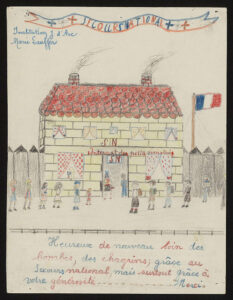 SECOURS NATIONAL
Institution J. d'Arc
Marie
S.N
des petits
Heureux de nouveau loin des
bombes, des chagrins; grâce au
Secours national, mais surtout grâce à
votre générosité ............ Merci.